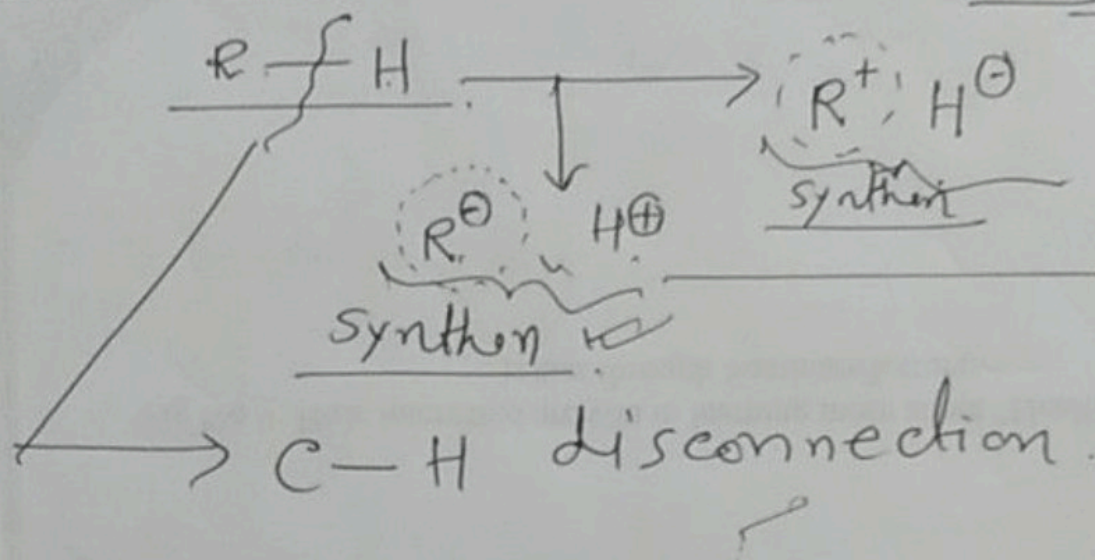 R—H → R⁺ H⊖
synthen
R⊖ H⊕
synthen
C—H disconnection.